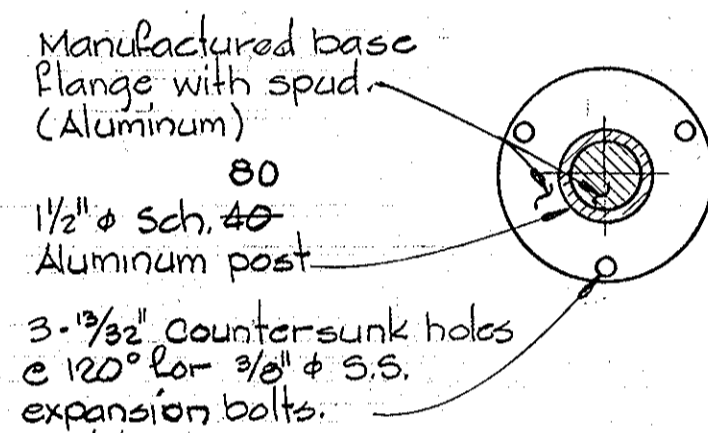 Manufactured base
flange with spud.
(Aluminum)
80
1 1/2" ϕ Sch. 40
Aluminum post
3 - 13/32" Countersunk holes
@ 120° for 3/8" ϕ S.S.
expansion bolts.